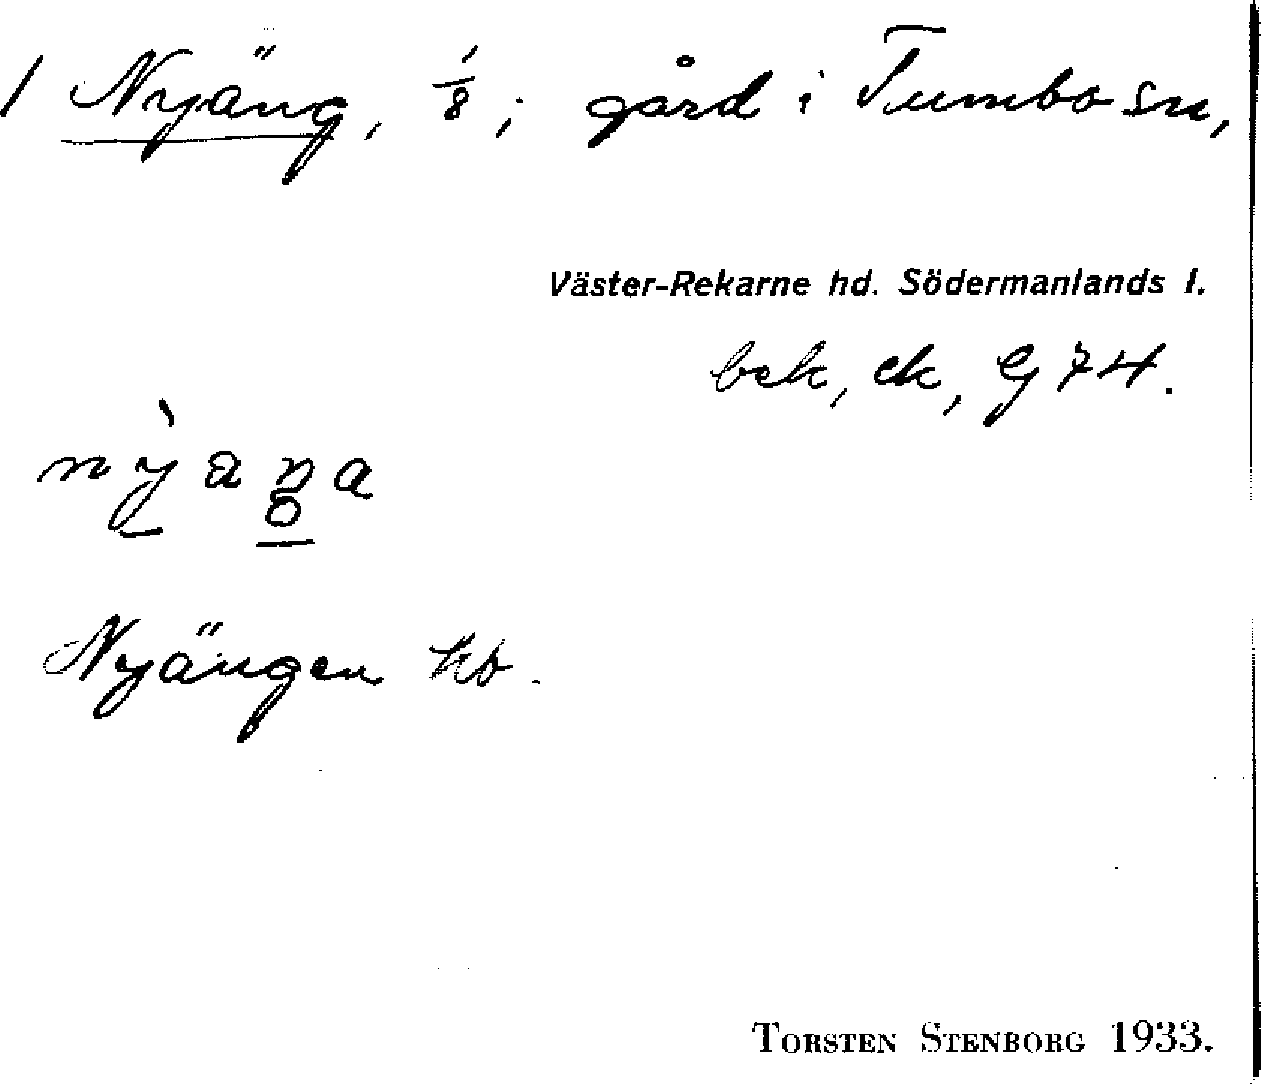 1 Nyäng, 1/8; gård i Tumbo sn,
Väster-Rekarne hd. Södermanlands l.
bek, ek, G 74.
Nyängen hb.
TORSTEN STENBORG 1933.